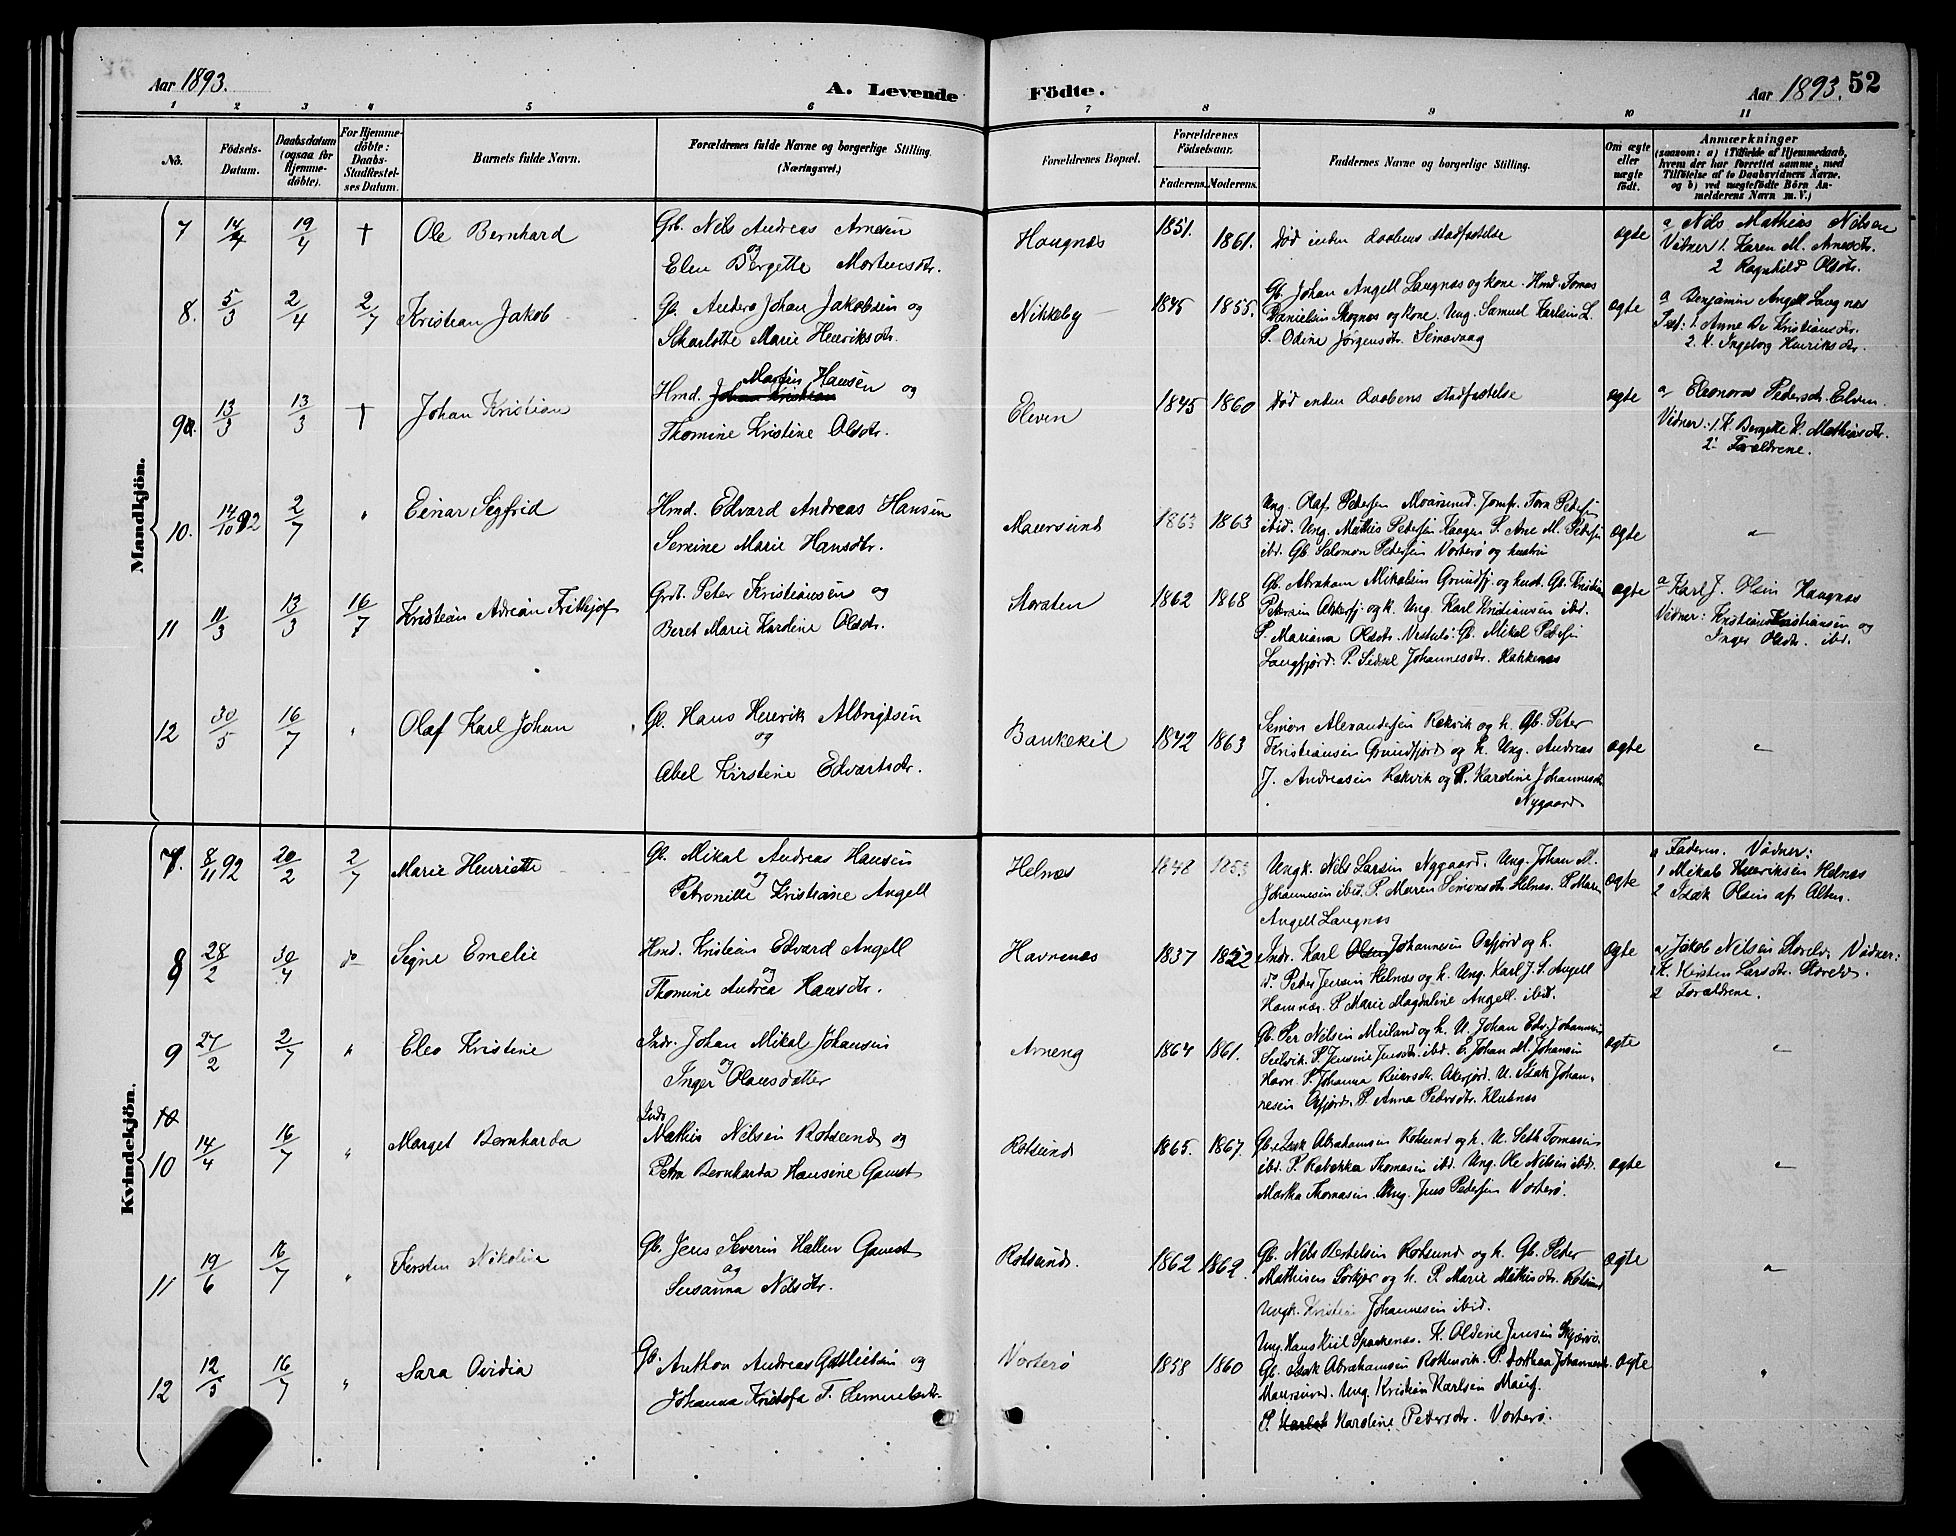 Aar 1893.
A. Levende Födte.
Aar 1893. 52
1 2 3 4 5 6 7 8 9 10 11
No.
Födsels-Datum.
Daabsdatum (ogsaa for Hjemme-döbte).
For Hjemme-döbte: Daabs-Stadfæstel-ses Datum.
Barnets fulde Navn.
Forældrenes fulde Navne og borgerlige Stilling. (Næringsvei.)
Forældrenes Bopæl.
Forældrenes Födselsaar.
Faderens. Moderens.
Faddernes Navne og borgerlige Stilling.
Om ægte eller uægte födt.
Anmærkninger
(saasom: a) i Tilfælde af Hjemmedaab,
hvem der har forrettet samme, med
Tilföielse af to Daabsvidners Navne.
og b) ved uægtefödte Börn An-
melderens Navn m. V.)
Mandkjön.
7 14/4 19/4 † Ole Bernhard
Gb. Nils Andreas Arnesen
og
Elen Bergette Mortensdtr.
Haugnæs 1851. 1861.
Död inden daabens stadfæstelse
ægte
a Nils Mathias Nilsen
Vidner 1. Karen M. Arnesdtr.
2 Ragnhild Olsdtr.
8. 5/3 2/4 2/7 Kristian Jakob
Gb. Anders Johan Jakobsen og
Skarlotte Marie Henriksdtr.
Nikkeby 1845 1855.
Gb. Johan Angell Laugnæs og kone. Hmd. Tomas
Danielsen Skognæs og kone. Ung. Samuel Karlsen L.
P. Odine Jørgensdtr. Simavaag
ægte
a Benjamin Angell Laugnæs
1. Anne Kristiansdtr.
2. K. Ingeborg Henriksdtr.
9a. 13/3 13/3 † Johan Kristian
Hmd. Johan Kristian Martin Hansen og
Thomine Kristine Olsdtr.
Eleven 1845 1860
Död inden daabens stadfæstelse
ægte
a Eleonora Pedersdtr. Elven
Vidner: 1. K. Bergette K. Mathisdtr.
2 Forældrene.
10. 14/10 92 2/7 " Einar Sigfrid
Hmd. Edvard Andreas Hansen
Semine Marie Hansdtr.
Maursund 1863 1863
Ung. Olaf Pedersen Maursund. Jomf. Petersen
ibid. Ung. Mathis Pedersen Kaagen P. Ane M. Pedersen
ibd. Gb. Salomon Pedersen Vorterø og hustru
ægte "
11 11/3 13/3 16/7 Kristian Adrian Frithjof
Grb. Peter Kristiansen og
Beret Marie Kardine Olsdtr.
Storsten 1862 1868
Gb. Abraham Mikalsen Grundfj. og hust. Gb. Kristian
Petersen Akkerfj og k. Ung. Karl Kristiansen ibid.
P. Mariana Olsdtr. Vorterø. Gb. Mikal Pedersen
Laugfjord. P. Sidsel Johannesdtr. Hakkenæs
ægte
a Karl J. Olsen Haugnæs
Vidner: Kristian Kristiansen og
Inger Olsdtr. ibd.
12 30/5 16/7 " Olaf Karl Johan
Gb. Hans Henrik Albrigtsen
og
Abel Kirstine Edvartsdtr.
Bankekil 1842 1863
Simon Alexandersen Rakvik og h. Gb. Peter
Kristiansen Grundfjord og h. Ung. Andreas
J. Andreasen Rakvik og P. Kardine Johannesdtr.
Nygaard
ægte "
Kvindekjön.
7. 8/11 92 20/2 2/7 Marie Henriette
Gb. Mikal Andreas Hansen
og
Petronille Kristiane Angell
Helnæs 1848 1853
Ungk. Nils Larsen Nygaard. Ung. Johan M.
Johannesen ibid. P. Maren Simonsdtr. Helnæs. P. Maren
Angell Laugnæs
ægte
a Faderen. Vidner:
1 Mikal Henriksen Helnæs
2 Isak Olsen af Alten.
8 28/2 30/4 do Signe Emelie
Hmd. Kristian Edvard Angell
og
Thomine Andrea Hansdtr.
Havnnæs 1837 1852
Indr. Karl Johannesen Oxfjord og h.
Peder Jensen Helnæs og h. Ung. Karl J. S. Angell
Havnnæs. P. Marie Magdaline Angell. ibid.
ægte
a Jakob Nilsen Storelv. Vidner:
1 K. Kirsten Larsdtr. Storelv.
2 Forældrene.
9 27/2 2/7 " Cleo Kristine
Indr. Johan Mikal Johansen
og
Inger Olausdatter
Arneng 1864 1861.
Gb. Per Nilsen Meiland og h. U. Johan Edv. Johannesen
Seilvik. P. Jensine Jensdtr. ibd. E. Johan M. Johansen
Havn. P. Johanna Reiersdtr. Akerfjord. U. Isak Johan-
nesen Oxfjord. P. Anna Pedersdtr. Klubnæs
ægte "
10
10 14/4 16/7 " Marget Bernharda
Indr.
Mathis Nilsen Rotsund og
Petra Bernharda Hansine Gamst
Rotsund 1865. 1867.
Gb. Isak Abrahamsen Rotsund og h. U. Seth Tomasen
ibd. P. Rebekka Thomasen ibd. Ung. Ole Nilsen ibd.
Martha Thomasen. Ung. Jens Pedersen Vorterø.
ægte "
11 19/6 16/7 " Kirsten Nikoline
Gb. Jens Severin Hallen Gamst
og
Susanna Nilsdtr.
Rotsund. 1862 1862.
Gb. Nils Bertelsen Rotsund og h. Gb. Peder
Mathisen Sørkjos og h. P. Marie Mathisdtr. Rotsund
Ungk. Kristian Johannesen ibid.
ægte "
12 12/5 16/7 " Sara Ovidia
Gb. Anthon Andreas Gottliebsen og
Johanna Kristofa F. Hemmelsdtr.
Vorterø 1858 1860
Ung. Hans Kiil Spaakenæs. K. Oldine Jensen Skjærvø.
Gb. Isak Abrahamsen Rottenvik. P. Dorthea Johannesdtr.
Maursund. Ung. Kristian Karlsen Maurs.
P. Kardine Petersdtr. Vorterø.
ægte "